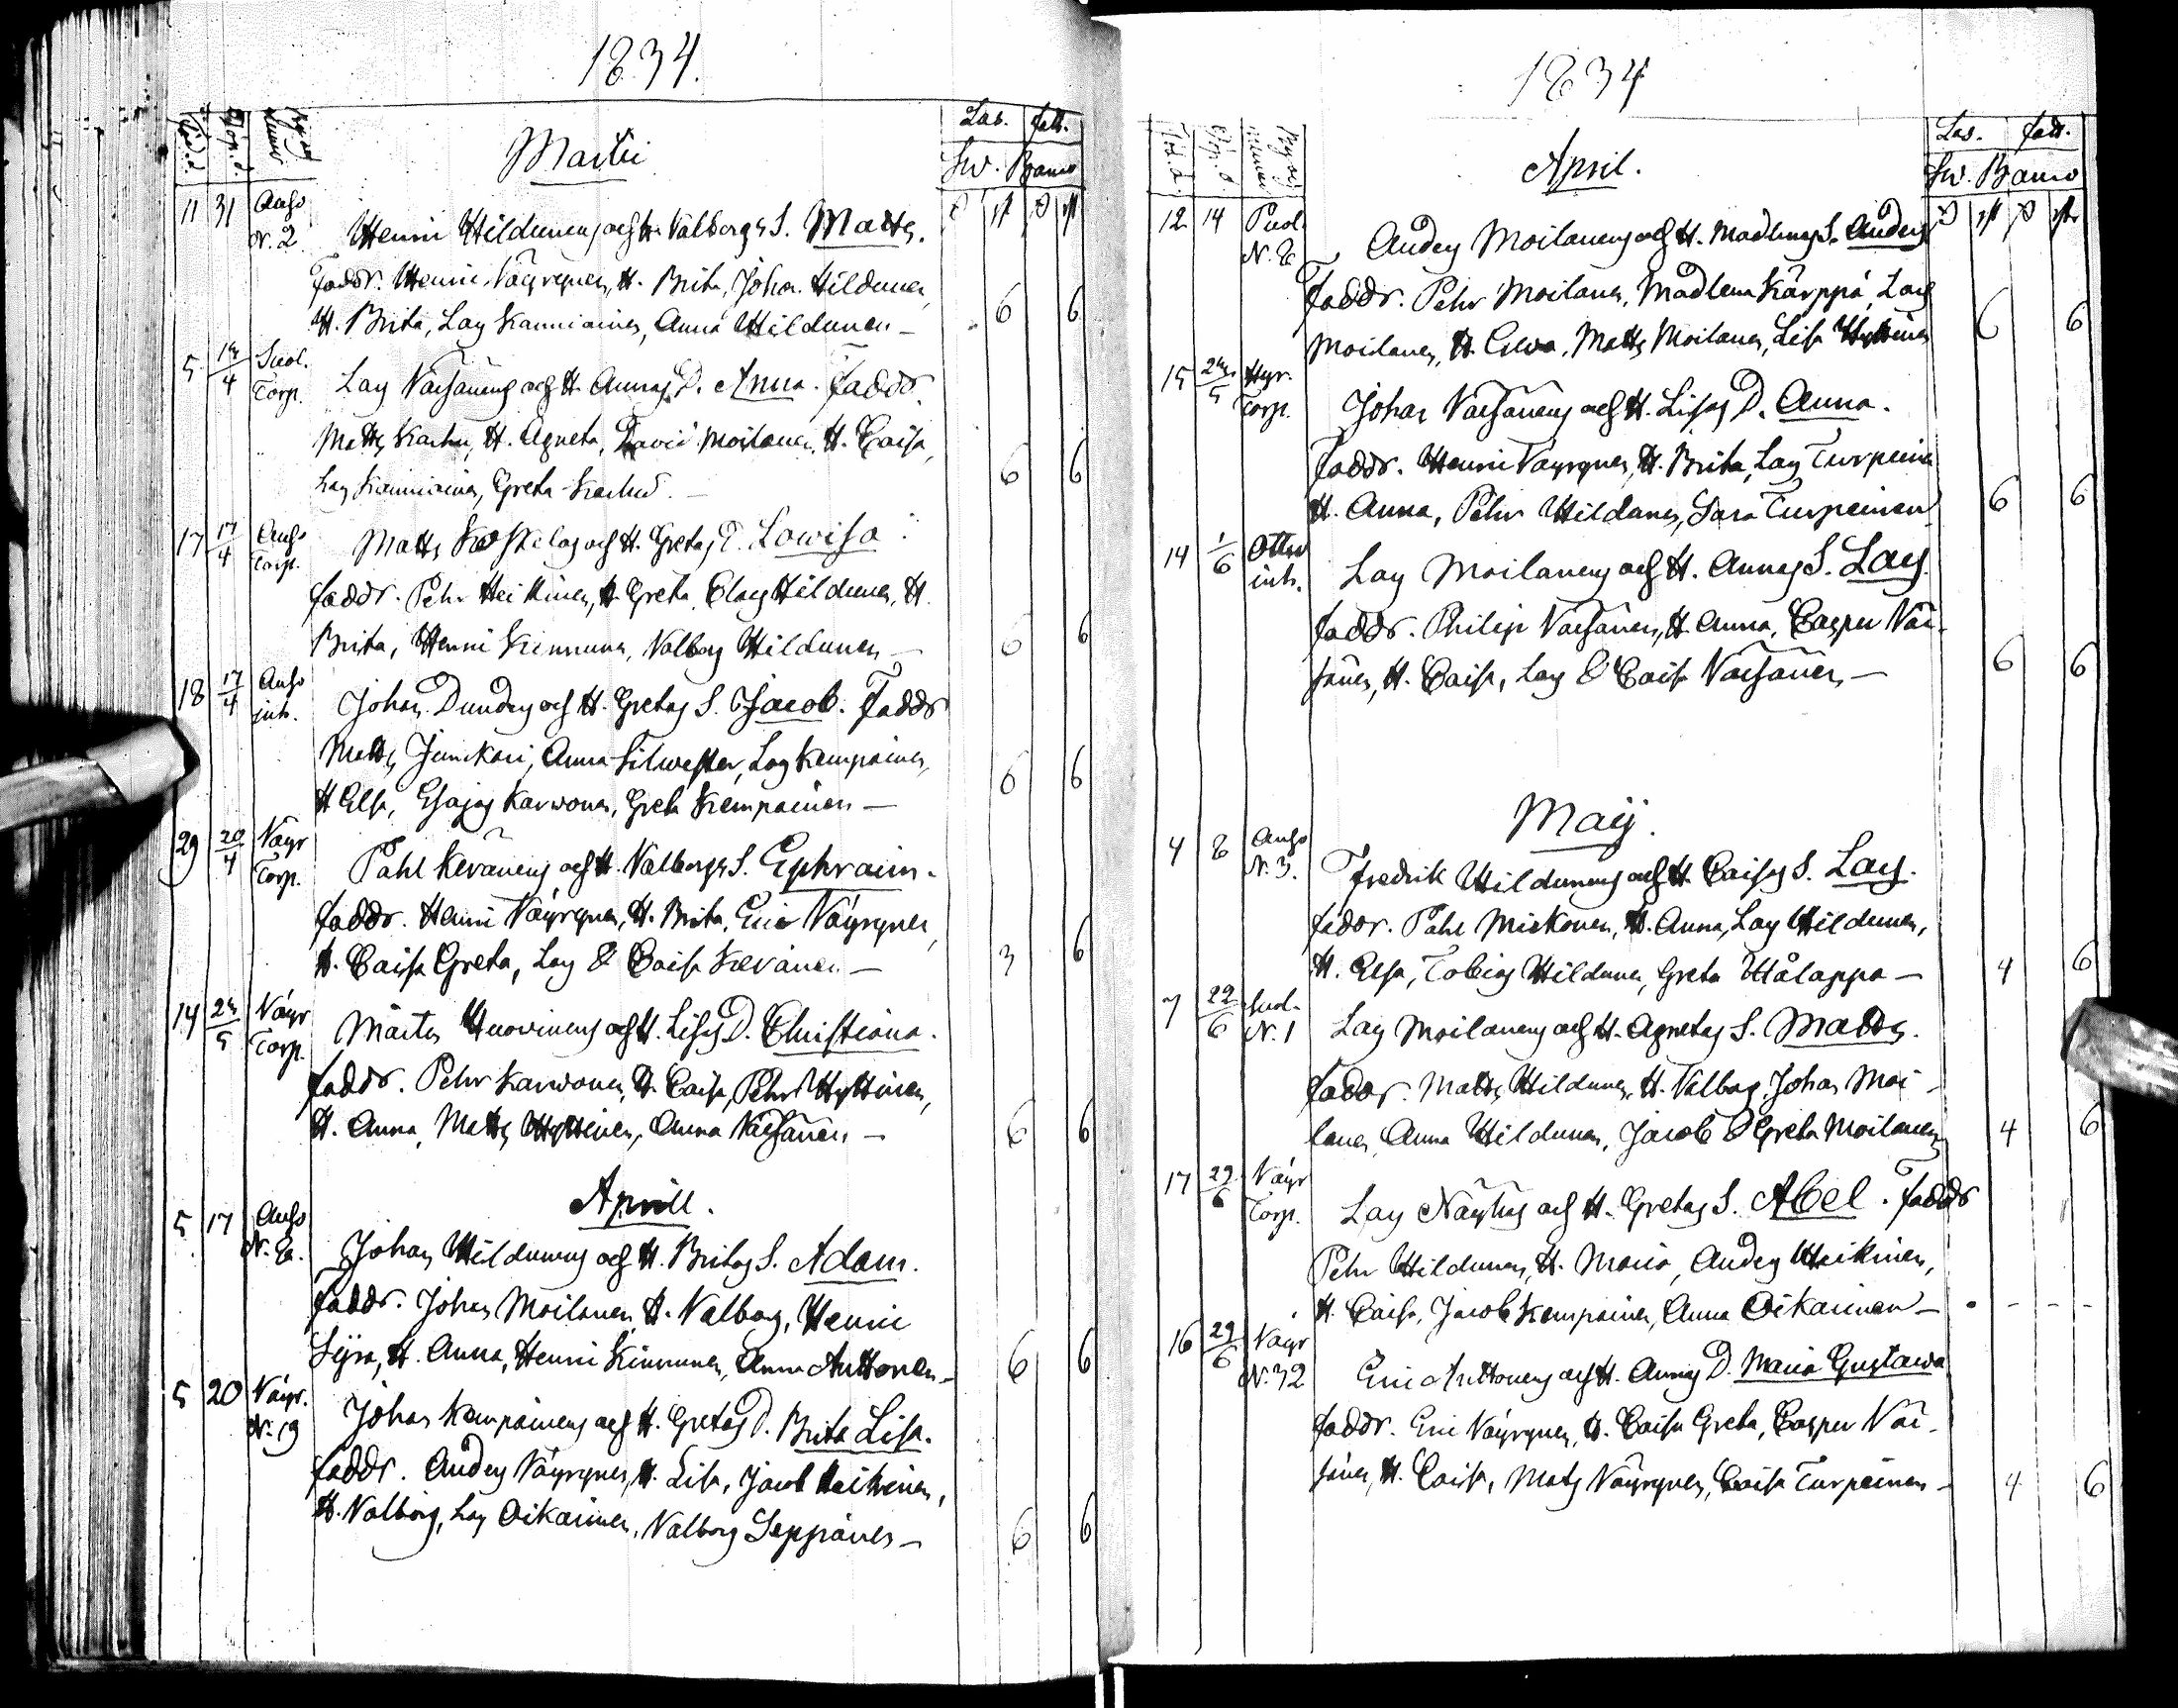 1834.
Föd. d. Döp. d. Byar Numer
Martii
Las. fadd.
Sw. Banco
11 31 Anso N. 2 Henric Hildunens och H. Valborgs S. Matts.
Faddr. Henric Väyrynen, H. Brita, Johan Hildunen,
H. Brita, Lars Kanniainen, Anna Hildunen — 6 6
5 Suol. Torp. Lars Väisänens och H. Annas D. Anna. Faddr.
Matts Karhu, H. Agneta, David Moilanen, H. Caisa,
Lars Kanniainen, Greta Karhu. — 6 6
17 17/4 Anso Torp. Matts Koskelas och H. Gretas D. Lowisa.
faddr. Pehr Heikkinen, H. Greta, Clas Hildunen, H.
Brita, Henric Kinnunen, Valborg Hildunen — 6 6
18 17/4 Anso inh. Johan Dunders och H. Gretas S. Jacob. Faddr
Matts Junkari, Anna Silwester, Lars Kempainen,
H Elsa, Esajas Karvonen, Greta Kempainen — 6 6
29 20/4 Väyr Torp. Påhl Keränens och H. Valborgs S. Ephraim.
faddr. Henric Väyrynen, H. Brita, Eric Väyrynen,
H. Caisa Greta, Lars & Caisa Keränen — 3 6
14 24/5 Väyr Torp. Mårten Huovinens och H. Lisas D. Christiana.
faddr. Pehr Karvonen, H. Caisa, Pehr Hyttinen,
H. Anna, Matts Hyttinen, Anna Väisänen — 6 6
Aprill.
5 17 Anso N. 8. Johan Hildunens och H. Britas S. Adam.
faddr. Johan Moilanen, H. Valborg, Henric
Syra, H. Anna, Henric Kinnunen, Anna Anttonen — 6 6
5 20 Väyr. N. 19 Johan Kempainens och H. Gretas D. Brita Lisa.
faddr. Anders Väyrynen, H. Lisa, Jacob Heikkinen,
H. Valborg, Lars Oikarinen, Valborg Seppänen — 6 6
1834
Föd. d. Döp. d. Byar Numer
April.
Las. fadd.
Sw. Banco
12 14 Puol. N. 8 Anders Moilanens och H. Madlenas S. Anders
Faddr. Pehr Moilanen, Madlena Kärppä, Lars
Moilanen, H. Ewa, Matts Moilanen, Lisa Hyttinen 6 6
15 24/5 Hyr. Torp. Johan Väisänens och H. Lisas D. Anna.
faddr. Henric Väyrynen, H. Brita, Lars Turpeinen
H. Anna, Pehr Hildunen, Sara Turpeinen 6 6
14 1/6 inh. Lars Moilanens och H. Annas S. Lars.
faddr. Philip Väisänen, H. Anna, Casper Väi-
sänen, H. Caisa, Lars & Caisa Väisänen — 6 6
Maij.
4 8 Anso N. 3. Fredrik Hildunens och H. Caisas S. Lars.
faddr. Påhl Mickonen, H. Anna, Lars Hildunen,
H. Elsa, Tobias Hildunen, Greta Hålappa — 4 6
7 22/6 Suol. N. 1 Lars Moilanens och H. Agnetas S. Matts.
faddr. Matts Hildunen, H. Valborg, Johan Moi-
lanen, Anna Hildunen, Jacob & Greta Moilanen 4 6
17 29/6 Väyr Torp. Lars Näyhäs och H. Gretas S. Abel. faddr
Pehr Hildunen, H. Maria, Anders Heikkinen,
H. Caisa, Jacob Kempainen, Anna Oikarinen — - - - -
16 29/6 Väyr N. 32 Eric Anttonens och H. Annas D. Maria Gustava
faddr. Eric Väyrynen, H. Caisa Greta, Casper Väi-
sänen, H. Caisa, Mats Väyrynen, Caisa Turpeinen — 4 6